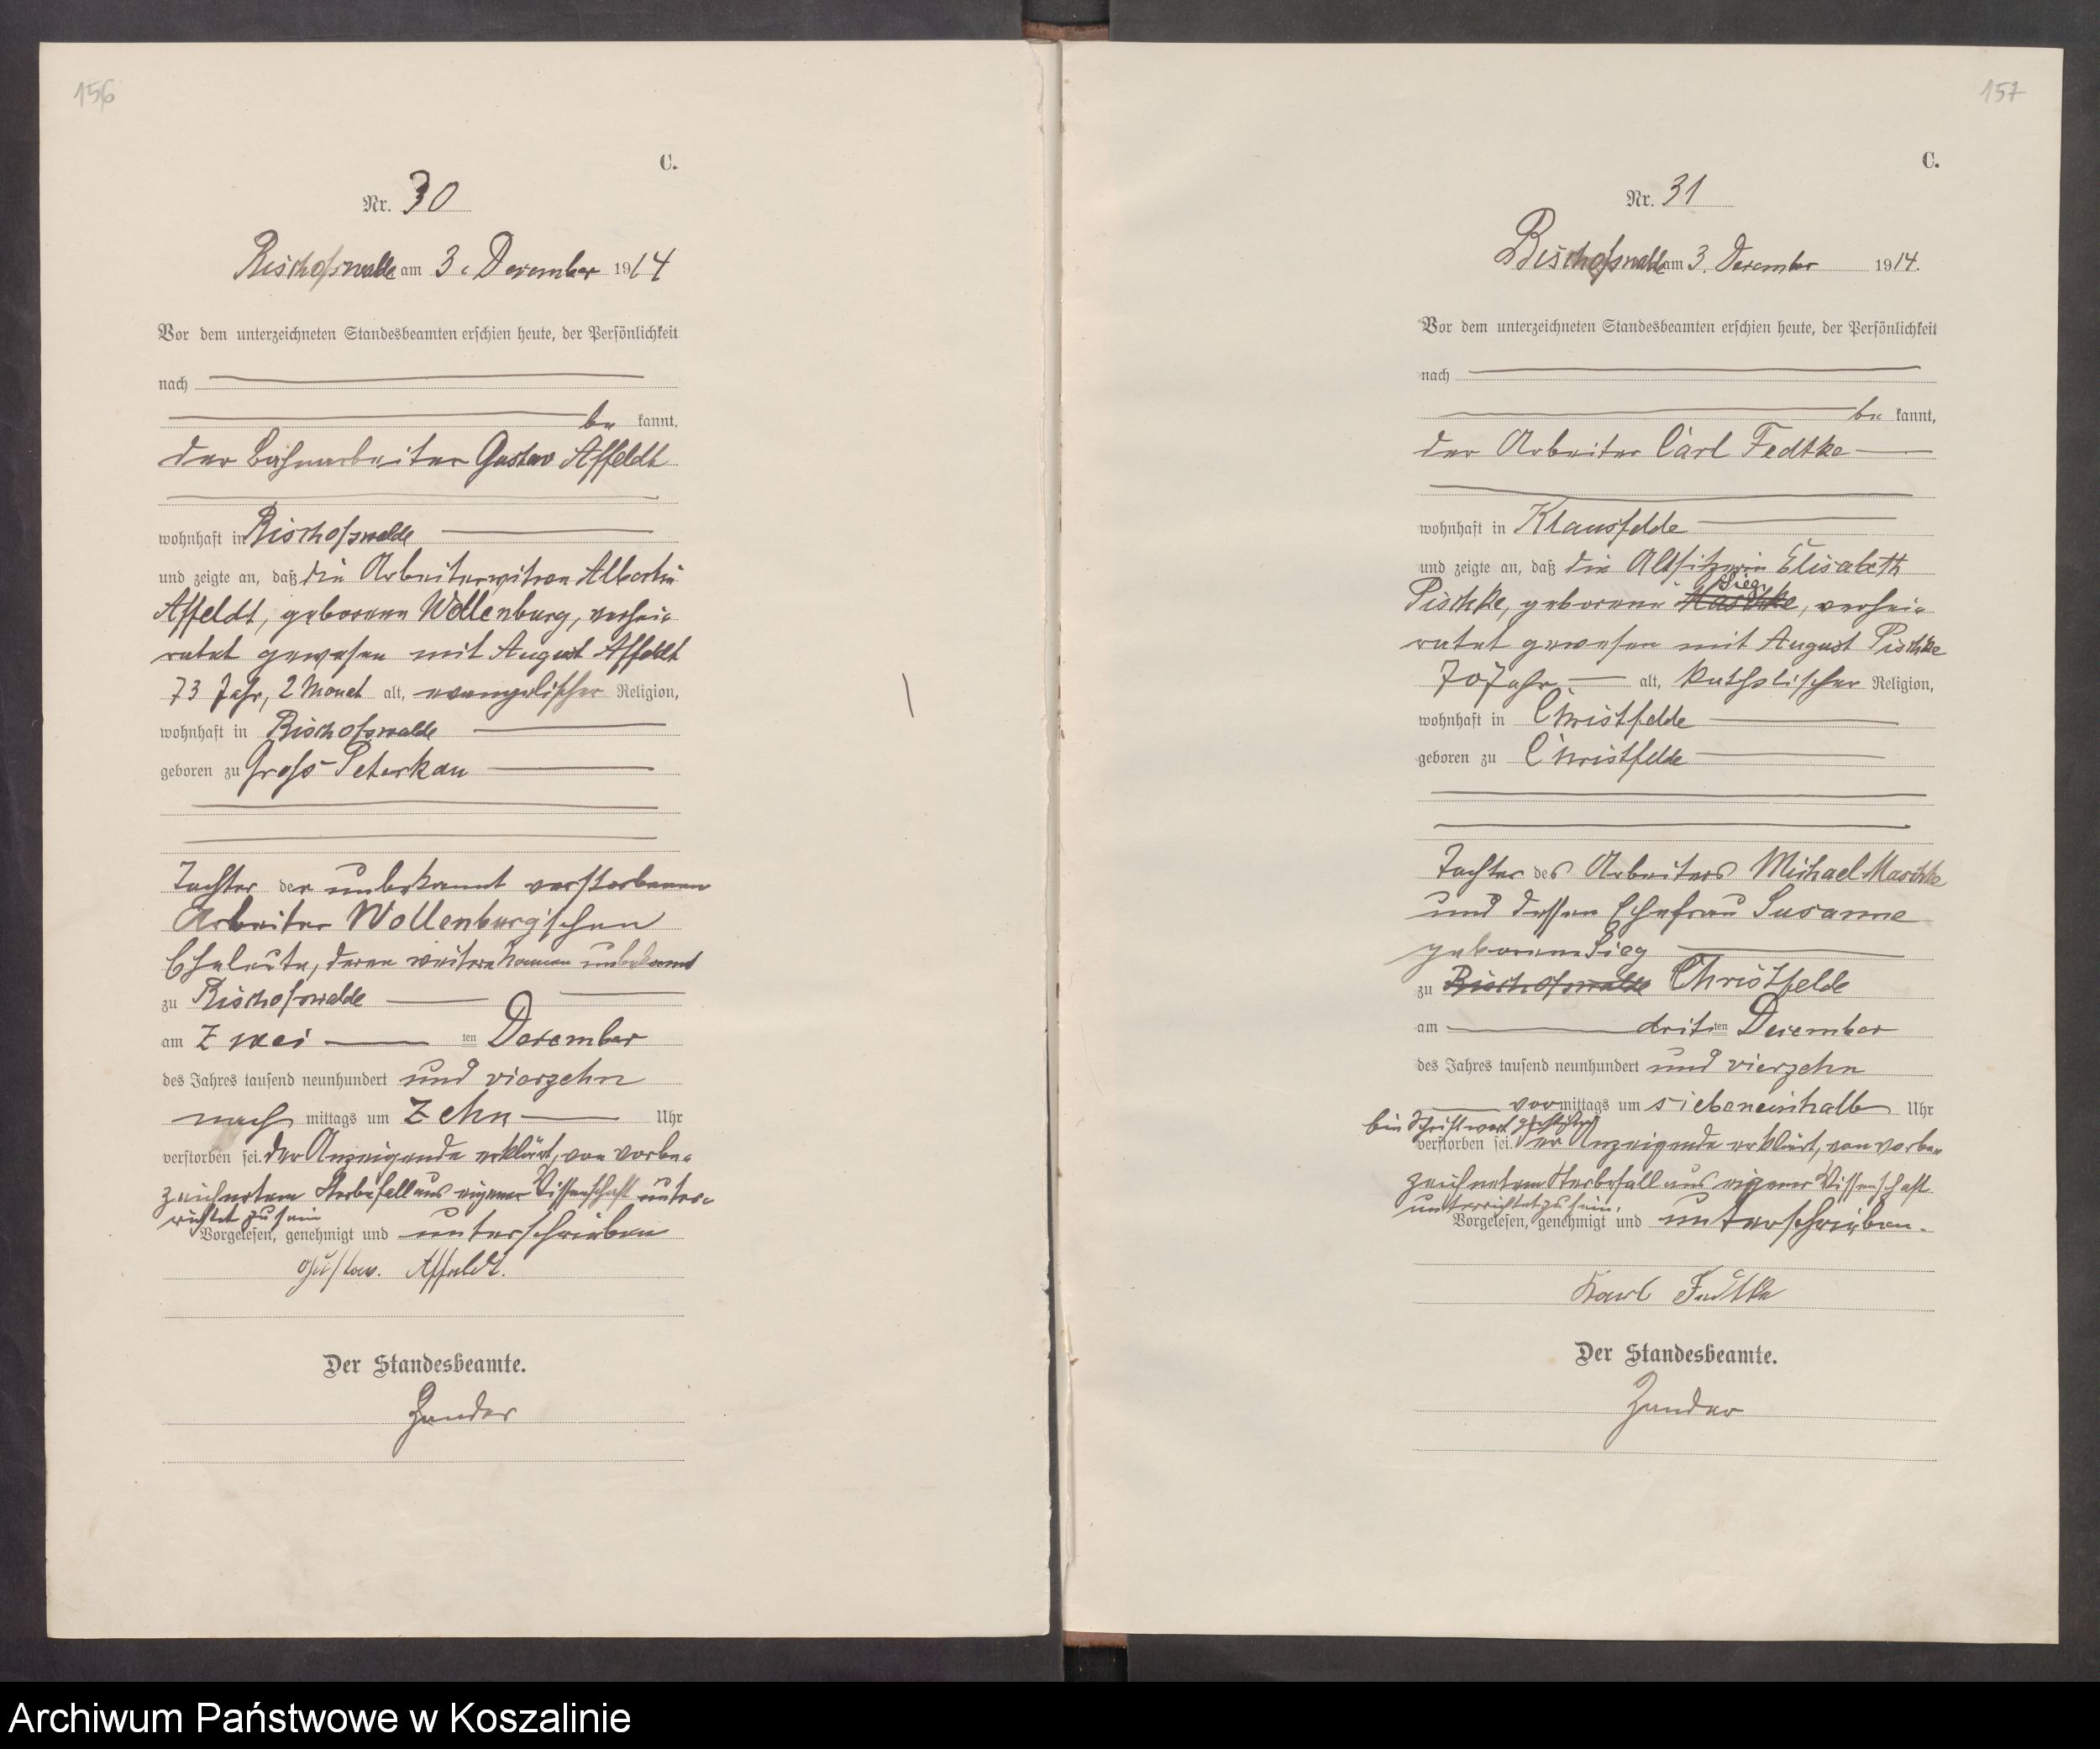 156
C.
Nr. 30
Bischofswalde am 3. Dezember 1914
Vor dem unterzeichneten Standesbeamten erschien heute, der Persönlichkeit
nach
be kannt,
der Bahnarbeiter Gustav Affeldt
wohnhaft in Bischofswalde
und zeigte an, daß die Arbeiterwitwe Albertine
Affeldt, geborene Wollenburg, verhei-
ratet gewesen mit August Affeldt
73 Jahr, 2 Monat alt, evangelischer Religion,
wohnhaft in Bischofswalde
geboren zu Groß-Peterkau
Tochter der unbekannt verstorbenen
Arbeiter Wollenburg'schen
Eheleute, deren weitere Namen unbekannt
zu Bischofswalde
am Zwei ten Dezember
des Jahres tausend neunhundert und vierzehn
nach mittags um Zehn Uhr
verstorben sei. Der Anzeigende erklärt, von vorbe-
zeichnetem Sterbefall aus eigener Wissenschaft unter-
richtet zu sein
Vorgelesen, genehmigt und unterschrieben
Gustav. Affeldt.
Der Standesbeamte.
Zander
157
C.
Nr. 31
Bischofswalde am 3. Dezember 1914.
Vor dem unterzeichneten Standesbeamten erschien heute, der Persönlichkeit
nach
be kannt,
der Arbeiter Carl Fedtke
wohnhaft in Klausfelde
und zeigte an, daß die Altsitzerin Elisabeth
Sieg
Pischke, geborene Maschke, verhei-
ratet gewesen mit August Pischke
70 Jahr alt, katholischer Religion,
wohnhaft in Christfelde
geboren zu Christfelde
Tochter des Arbeiters Michael Maschke
und dessen Ehefrau Susanne
geborene Sieg
zu Bischofswalde Christfelde
am drit ten Dezember
des Jahres tausend neunhundert und vierzehn
vor mittags um siebeneinhalb Uhr
ein Schriftwort gestrichen
verstorben sei. Der Anzeigende erklärt, von vorbe-
zeichnetem Sterbefall aus eigener Wissenschaft
unterrichtet zu sein.
Vorgelesen, genehmigt und unterschrieben.
Karl Fedtke
Der Standesbeamte.
Zander
Archiwum Państwowe w Koszalinie